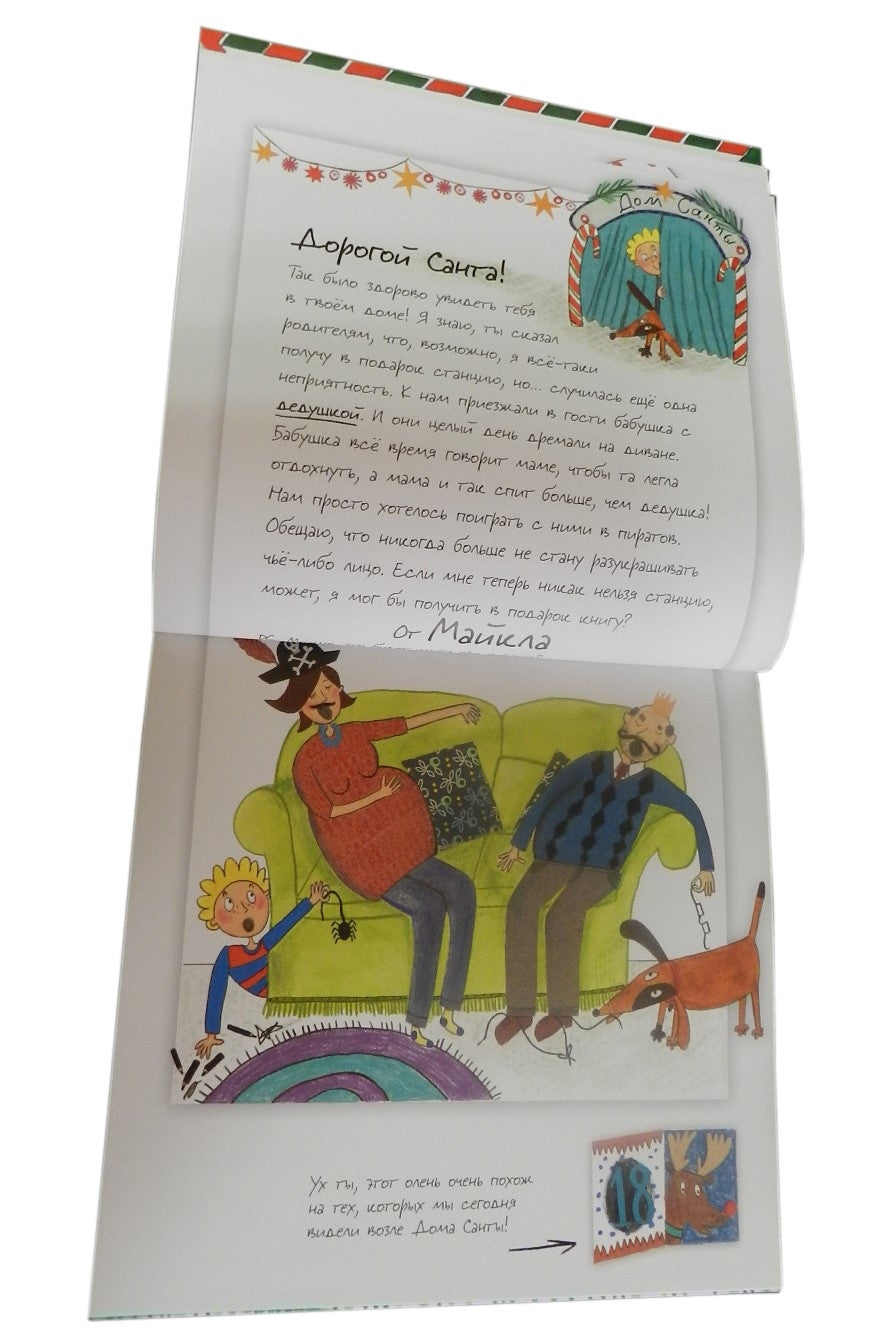 Дом Санты
Дорогой Санта!
Так было здорово увидеть тебя
в твоём доме! Я знаю, ты сказал
родителям, что, возможно, я всё-таки
получу в подарок станцию, но... случилась ещё одна
неприятность. К нам приезжали в гости бабушка с
дедушкой. И они целый день дремали на диване.
Бабушка всё время говорит маме, чтобы та легла
отдохнуть, а мама и так спит больше, чем дедушка!
Нам просто хотелось поиграть с ними в пиратов.
Обещаю, что никогда больше не стану разукрашивать
чьё-либо лицо. Если мне теперь никак нельзя станцию,
может, я мог бы получить в подарок книгу?
От Майкла
18
Ух ты, этот олень очень похож
на тех, которых мы сегодня
видели возле Дома Санты!